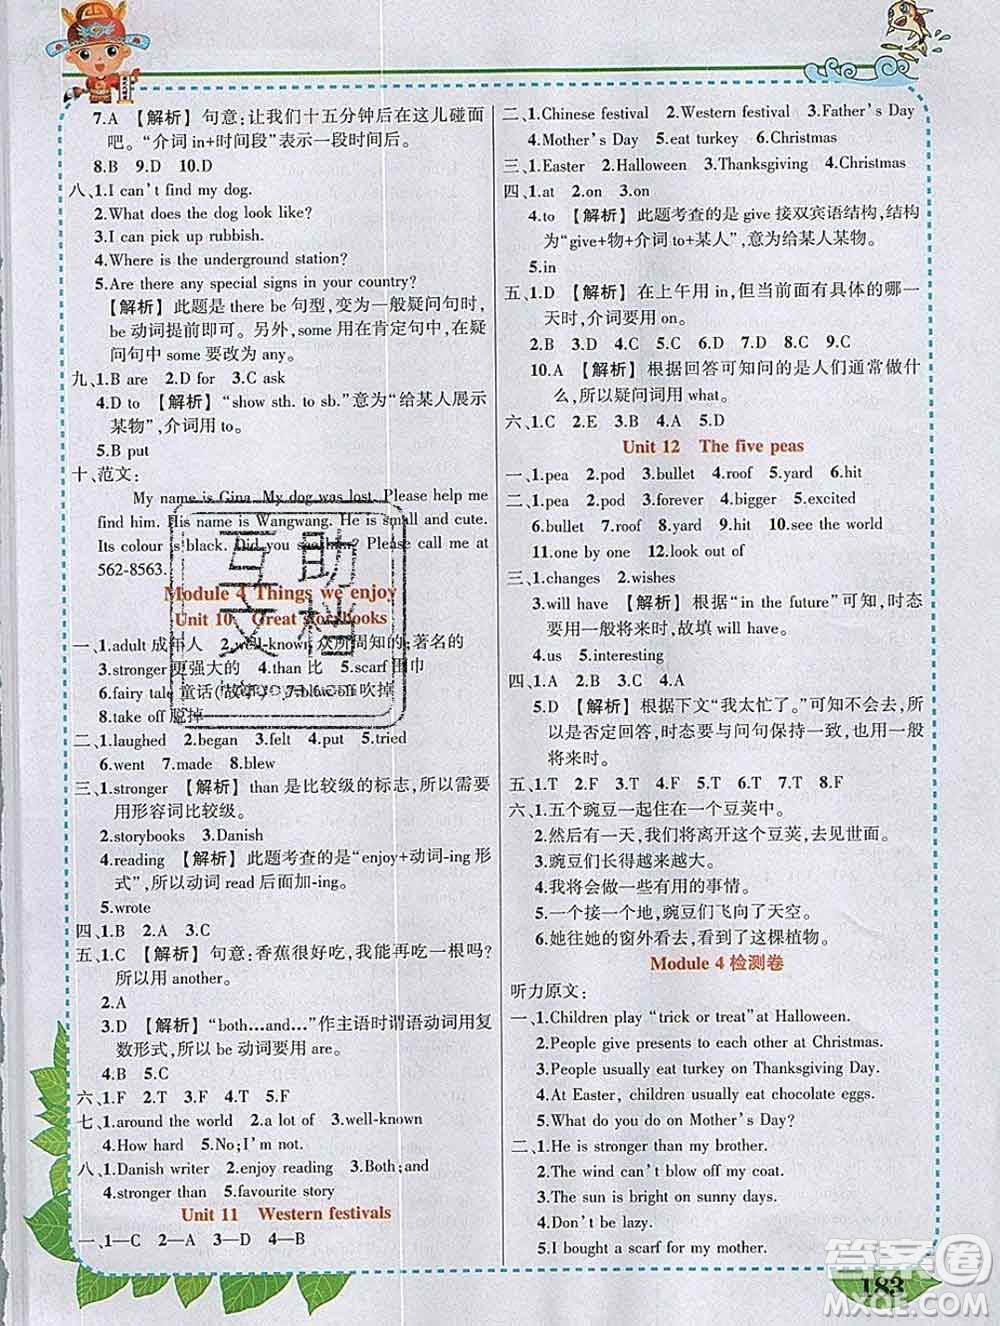 7.A 【解析】 句意:让我们十五分钟后在这儿碰面
吧。“介词in+时间段”表示一段时间后。
8.B 9.D 10.D
八、1.I can't find my dog.
2.What does the dog look like?
3.I can pick up rubbish.
4.Where is the underground station?
5.Are there any special signs in your country?
【解析】 此题是there be句型,变为一般疑问句时,
be动词提前即可。另外,some用在肯定句中,在疑
问句中some要改为any。
九、1.B are 2.D for 3.C ask
4.D to 【解析】“show sth. to sb.”意为“给某人展示
某物”,介词用to。
5.B put
十、范文:
My name is Gina. My dog was lost. Please help me
find him. His name is Wangwang. He is small and cute.
Its colour is black. Did you see him? Please call me at
562-8563.
Module 4 Things we enjoy
Unit 10 Great storybooks
一、1.adult 成年人 2.well-known 众所周知的;著名的
3.stronger 更强大的 4.than 比 5.scarf 围巾
6.fairy tale 童话(故事) 7.blow off 吹掉
8.take off 脱掉
二、1.laughed 2.began 3.felt 4.put 5.tried
6.went 7.made 8.blew
三、1.stronger 【解析】 than是比较级的标志,所以需要
用形容词比较级。
2.storybooks 3.Danish
4.reading 【解析】 此题考查的是“enjoy+动词-ing形
式”,所以动词read后面加-ing。
5.wrote
四、1.B 2.A 3.C
五、1.C 【解析】 句意:香蕉很好吃,我能再吃一根吗?
所以用another。
2.A
3.D 【解析】“both...and...”作主语时谓语动词用复
数形式,所以be动词要用are。
4.B 5.C
六、1.F 2.T 3.F 4.T 5.F
七、1.around the world 2.a lot of 3.well-known
4.How hard 5.No;I'm not.
八、1.Danish writer 2.enjoy reading 3.Both;and
4.stronger than 5.favourite story
Unit 11 Western festivals
一、1—C 2—A 3—D 4—B
二、1.Chinese festival 2.Western festival 3.Father's Day
4.Mother's Day 5.eat turkey 6.Christmas
三、1.Easter 2.Halloween 3.Thanksgiving 4.Christmas
四、1.at 2.on 3.on
4.to 【解析】 此题考查的是give接双宾语结构,结构
为“give+物+介词to+某人”,意为给某人某物。
5.in
五、1.D 【解析】 在上午用in,但当前面有具体的哪一
天时,介词要用on。
2.B 3.D 4.C 5.C 6.D 7.B 8.C 9.C
10.A 【解析】 根据回答可知问的是人们通常做什
么,所以疑问词用what。
六、1.C 2.E 3.B 4.A 5.D
Unit 12 The five peas
一、1.pea 2.pod 3.bullet 4.roof 5.yard 6.hit
二、1.pea 2.pod 3.forever 4.bigger 5.excited
6.bullet 7.roof 8.yard 9.hit 10.see the world
11.one by one 12.look out of
三、1.changes 2.wishes
3.will have 【解析】 根据“in the future”可知,时态
要用一般将来时,故填will have。
4.us 5.interesting
四、1.B 2.C 3.A 4.A
5.D 【解析】 根据下文“我太忙了。”可知未来的情况,所以
是否定回答,时态要与问句保持一致,也用一般
将来时。
五、1.T 2.F 3.F 4.T 5.F
六、1.五个豌豆一起住在一个豆荚中。
2.然后有一天,我们将离开这个豆荚,去见世面。
3.豌豆们长得越来越大。
4.我将会做一些有用的事情。
5.一个接一个地,豌豆们飞向了天空。
6.她往她的窗外看去,看到了这棵植物。
Module 4 检测卷
听力原文:
一、1.Children play “trick or treat”at Halloween.
2.People give presents to each other at Christmas.
3.People usually eat turkey on Thanksgiving Day.
4.At Easter, children usually eat chocolate eggs.
5.What do you do on Mother's Day?
二、1.He is stronger than my brother.
2.The wind can't blow off my coat.
3.The sun is bright on sunny days.
4.Don't be lazy.
5.I bought a scarf for my mother.
183
互助
文档
答案圈
MXQE.COM